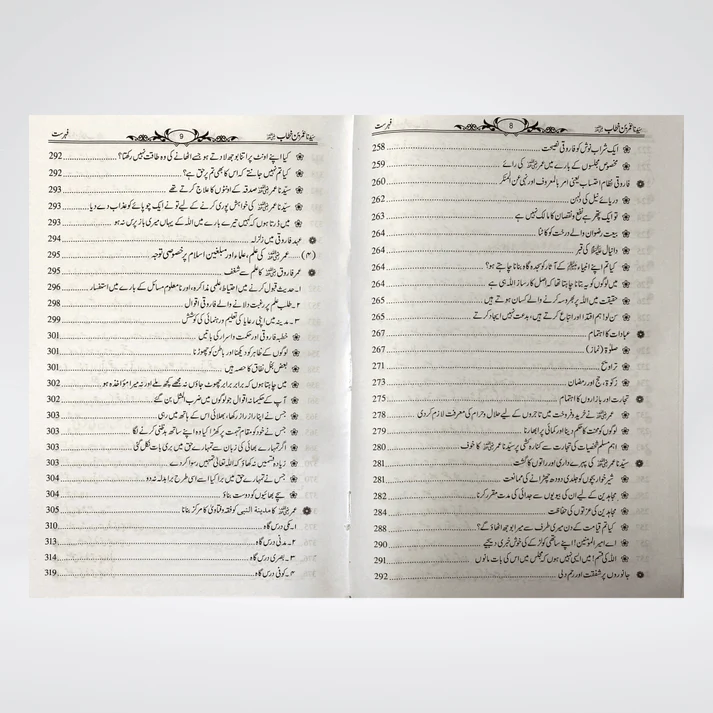 سیدنا عمر بن خطاب 8 فہرست
ایک شراب نوش کو فاروقی نصیحت 258
مخصوص مجلسوں کے بارے میں عمر رضی اللہ عنہ کی رائے 259
فاروقی نظام احتساب یعنی امر بالمعروف اور نہی عن المنکر 260
دریائے نیل کی دلہن 262
تو ایک پتھر ہے نفع و نقصان کا مالک نہیں ہے 263
بیعت رضوان والے درخت کو کاٹنا 264
دانیال علیہ السلام کی قبر 264
کیا تم اپنے انبیاء علیہم السلام کے آثار کو سجدہ گاہ بنانا چاہتے ہو؟ 264
میں لوگوں کو یہ بتانا چاہتا تھا کہ اصل کارساز اللہ ہی ہے 264
حقیقت میں اللہ پر بھروسہ کرنے والے کسان ہوتے ہیں 265
سن لو! ہم اقتدا اور اتباع کرتے ہیں، بدعت نہیں ایجاد کرتے 265
عبادات کا اہتمام 267
صلوٰۃ (نماز) 267
تراویح 271
زکوٰۃ، حج اور رمضان 273
تجارت اور بازاروں کا اہتمام 275
عمر رضی اللہ عنہ نے خرید و فروخت میں تاجروں کے لیے حلال و حرام کی معرفت لازم کر دی 278
لوگوں کو محنت کا حکم دینا اور کمائی پر ابھارنا 279
اہم مسلم شخصیات کی تجارت سے کنارہ کشی پر سیدنا عمر رضی اللہ عنہ کا خوف 280
سیدنا عمر رضی اللہ عنہ کی پہرے داری اور راتوں کا گشت 281
شیر خوار بچوں کو جلدی دودھ چھڑانے کی ممانعت 281
مجاہدین کے لیے ان کی بیویوں سے جدائی کی مدت مقرر کرنا 282
مجاہدین کی عزتوں کی حفاظت 284
کیا تم قیامت کے دن میری طرف سے میرا بوجھ اٹھاؤ گے؟ 288
اے امیر المومنین! اپنے ساتھی کو لڑکے کی خوش خبری دیجیے 290
اللہ کی قسم! میں ایسی نہیں ہوں کہ مجلس میں اس کی بات مانوں 291
جانوروں پر شفقت اور رحم دلی 292
سیدنا عمر بن خطاب 9 فہرست
کیا اپنے اونٹ پر اتنا بوجھ لادتے ہو جسے اٹھانے کی وہ طاقت نہیں رکھتا؟ 292
کیا تم نہیں جانتے کہ اس کا بھی تم پر حق ہے؟ 292
سیدنا عمر رضی اللہ عنہ صدقہ کے اونٹوں کا علاج کرتے تھے 293
سیدنا عمر رضی اللہ عنہ کی خواہش پوری کرنے کے لیے تو نے ایک چوپائے کو عذاب دے دیا 293
میں ڈرتا ہوں کہ کہیں تیرے بارے میں اللہ کے یہاں میری باز پرس نہ ہو 293
عہد فاروقی میں زلزلہ 294
(۴) عمر رضی اللہ عنہ کی علم، علماء اور مبلغین اسلام پر خصوصی توجہ 295
عمر فاروق رضی اللہ عنہ کا علم سے شغف 295
۱۔ حدیث قبول کرنے میں احتیاط، علمی مذاکرہ، اور نامعلوم مسائل کے بارے میں استفسار 296
۲۔ طلب علم پر رغبت دلانے والے فاروقی اقوال 298
۳۔ مدینہ میں اپنی رعایا کی تعلیم و رہنمائی کی کوشش 299
خطبہ فاروقی اور حکمت و اسرار کی باتیں 301
لوگوں کے ظاہر کو دیکھنا اور باطن کو چھوڑنا 301
بعض بخل نفاق کا حصہ ہیں 301
میں چاہتا ہوں کہ برابر برابر چھوٹ جاؤں نہ مجھے کچھ ملے اور نہ میرا مؤاخذہ ہو 302
آپ کے حکیمانہ اقوال جو لوگوں میں ضرب المثل بن گئے 302
جس نے اپنا راز راز رکھا، بھلائی اس کے ہاتھ میں رہی 303
جس نے خود کو مقام تہمت پر کھڑا کیا وہ اپنے ساتھ بدظنی کرنے 303
اگر تمہارے بھائی کی زبان سے تمہارے حق میں بری بات نکل گئی 303
زیادہ قسمیں نہ کھاؤ کہ اللہ تعالیٰ تمہیں رسوا کر دے 303
جس نے تمہارے حق میں برا کیا اسے اسی طرح برا بدلہ نہ دو 304
سچے بھائیوں کو دوست بناؤ 304
عمر رضی اللہ عنہ کا مدینۃ النبی کو فقہ و فتاویٰ کا مرکز بنانا 305
۱۔ مکی درس گاہ 310
۲۔ مدنی درس گاہ 313
۳۔ بصری درس گاہ 314
۴۔ کوفی درس گاہ 319